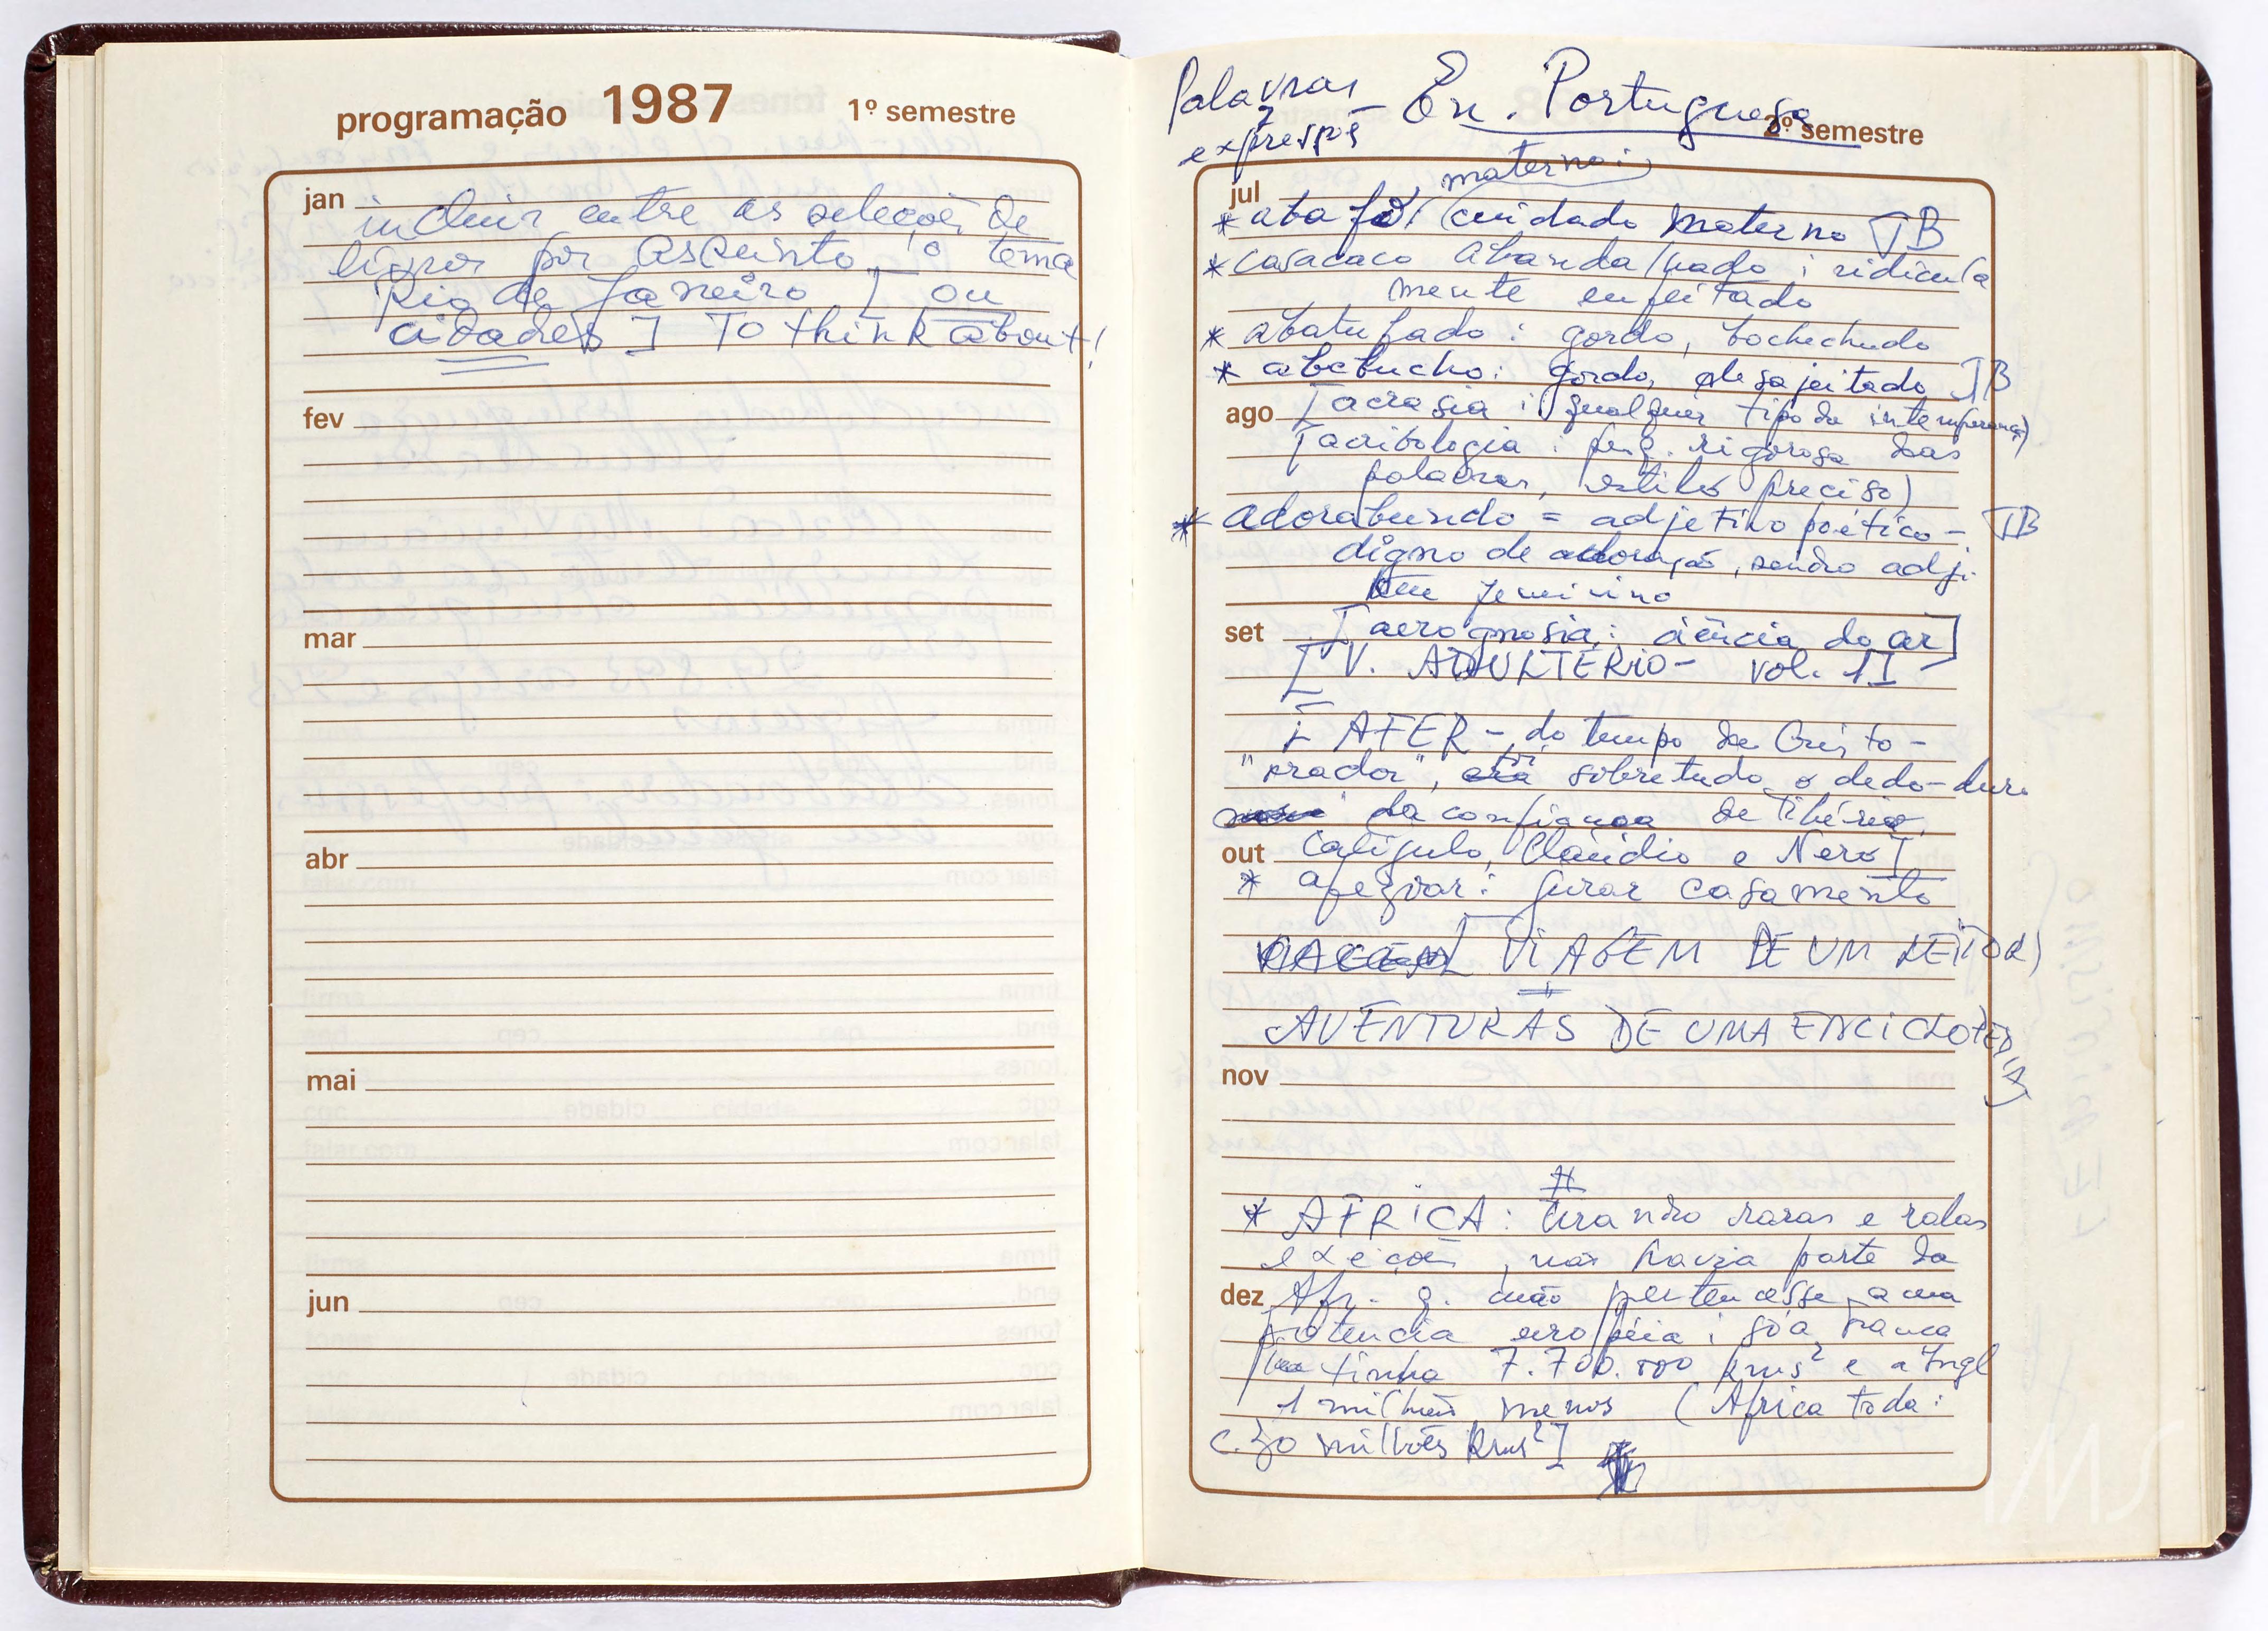 programação 1987 1º semestre
jan
incluir entre as seleções de
livros por assunto, o tema
Rio de Janeiro [ ou
cidades ] To think about!
fev
mar
abr
mai
jun
Palavras
e
expressões – En. Portuguesa
2º semestre
materno:
jul
* abafo: cuidado materno JB
* casacaco abandalhado; ridicula
mente enfeitado
* abatufado: gordo, bochechudo
* ababucho: gordo, desajeitado JB
ago [acrasia: qualquer tipo de intemperança]
[acribologia: pesq. rigorosa das
palavras, estilo preciso)
* adorabundo = adjetivo poético – JB
digno de adoração, sendo adj.
feminino
set [aerognosia: ciência do ar]
[V. ADULTÉRIO – vol. 1]
[AFER – do tempo de Cristo –
"orador", foi sobretudo o dedo-duro
da confiança de Tibério,
out Calígula, Cláudio e Nero]
* apezoar: jurar casamento
VIAGEM [ VIAGEM DE UM LEITOR)
AVENTURAS DE UMA ENCICLOPÉDIA)
nov
#
* AFRICA: tirando raras e ralas
exeições, não havia parte da
dez Afr. q. não pertencesse a uma
potencia européia; só a França
tinha 7.700.000 kms² e a Ingl
1 milhão menos (Africa toda:
c. 30 milhões kms²]
IMS